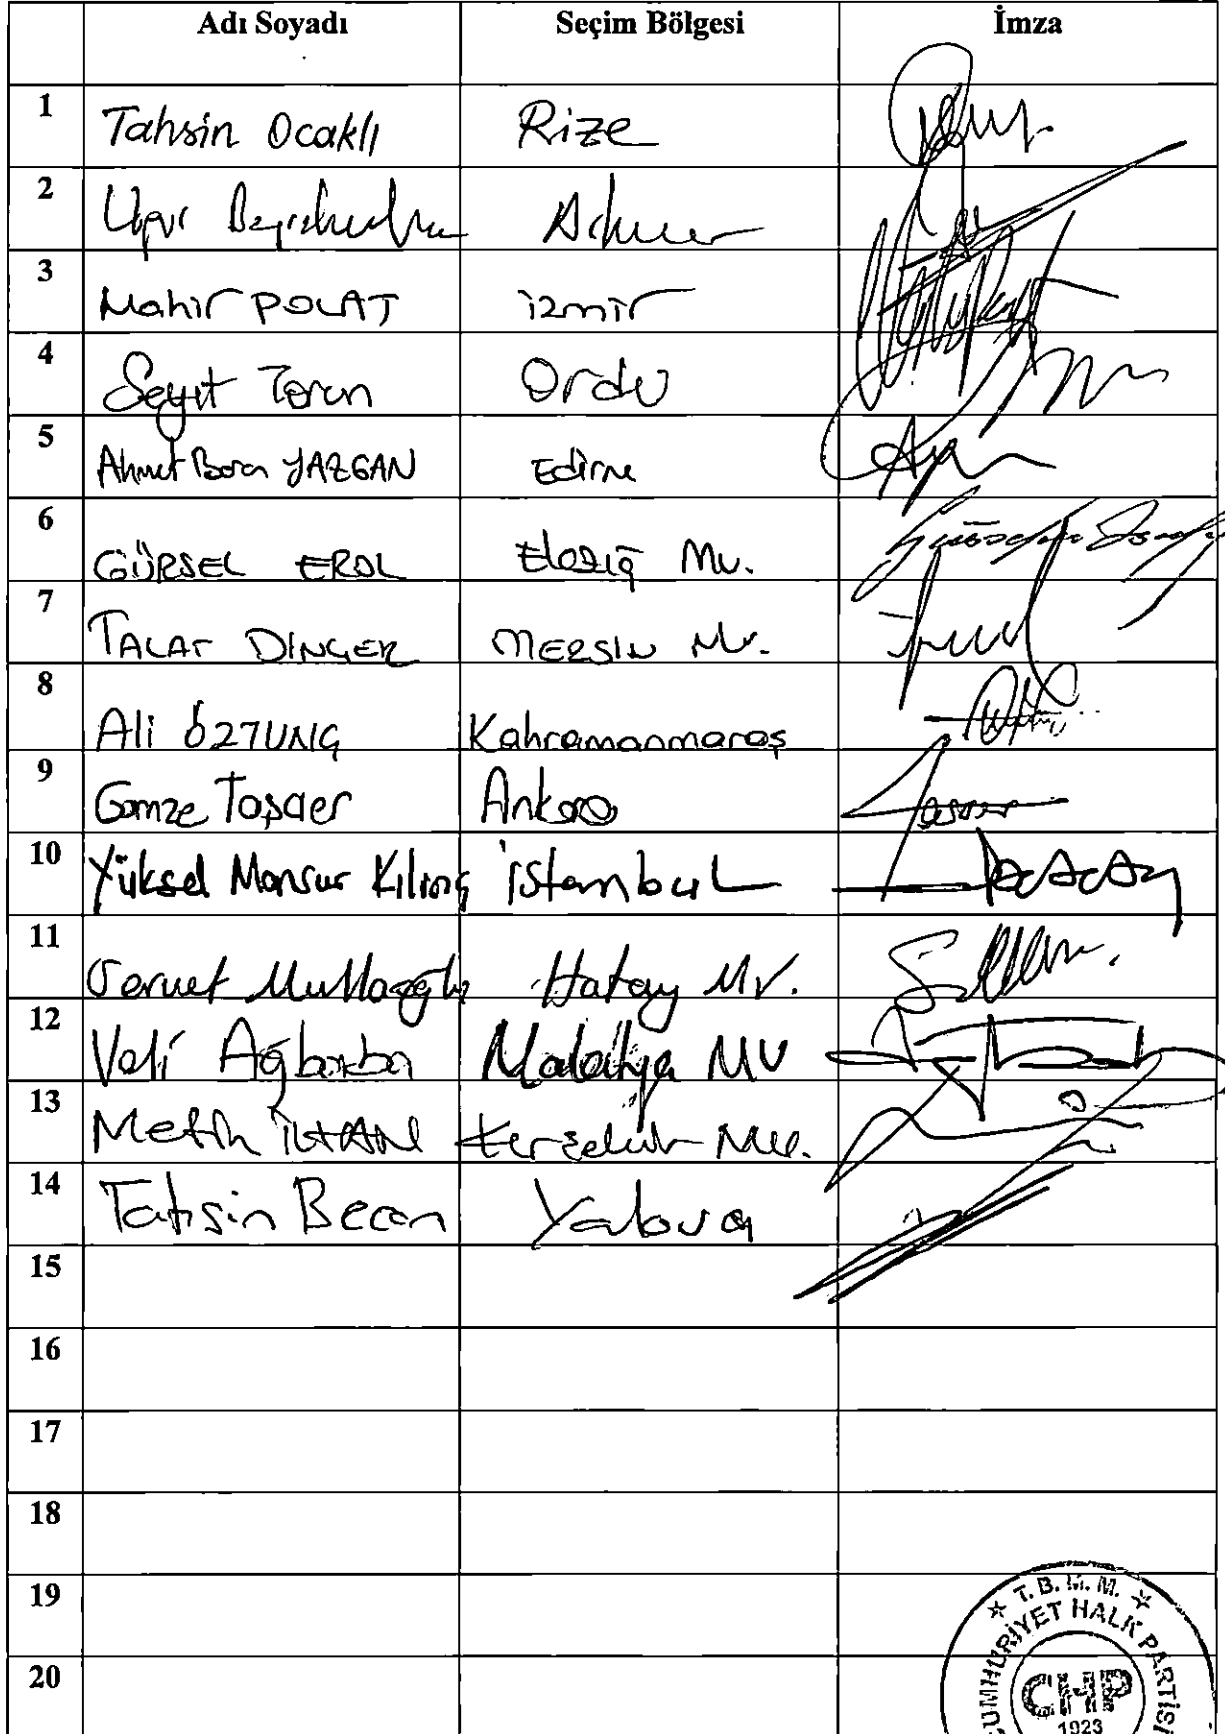 Adı Soyadı Seçim Bölgesi İmza
1 Tahsin Ocaklı Rize
2 Uğur Bayraktutan Artvin
3 Mahir POLAT izmir
4 Seyit Torun Ordu
5 Ahmet Baran YAZGAN Edirne
6 GÜRSEL EROL Elazığ Mv.
7 TALAT DİNÇER MERSİN Mv.
8 Ali ÖZTUNÇ Kahramanmaraş
9 Gamze Taşcıer Ankara
10 Yüksel Mansur Kılınç istanbul
11 Servet Mullaoğlu Hatay Mv.
12 Veli Ağbaba Malatya MV
13 Metin İLHAN Kırşehir Mv.
14 Tahsin Becan Yalova
15
16
17
18
19
20
T.B.M.M.
CUMHURİYET HALK PARTİSİ
CHP
1923